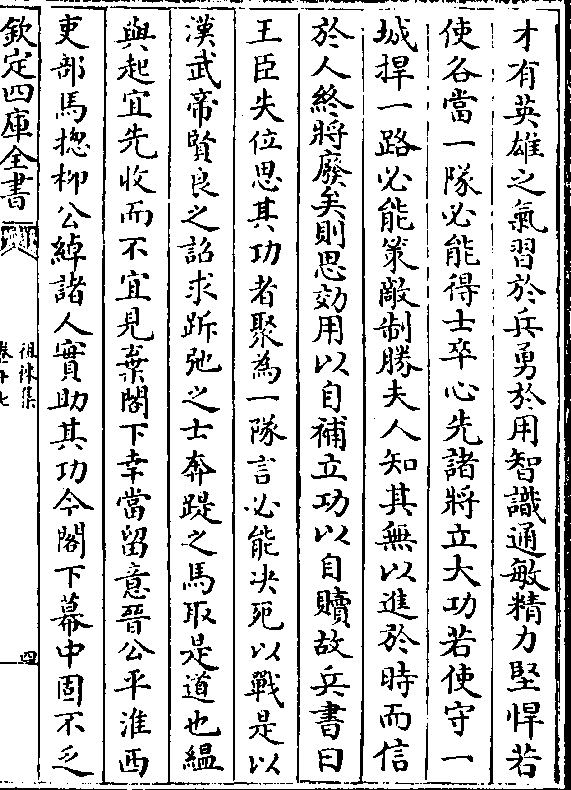 才有英雄之氣習於兵勇於用智識通敏精力堅悍若
使各當一隊必能得士卒心先諸將立大功若使守一
城捍一路必能策敵制勝夫人知其無以進於時而信
於人終將廢矣則思効用以自補立功以自贖故兵書曰
王臣失位思其功者聚為一隊言必能决死以戰是以
漢武帝賢良之詔求跅弛之士奔踶之馬取是道也緼
與起宜先收而不宜見棄閣下幸當留意晉公平淮西
吏部馬揔柳公綽諸人實助其功今閣下幕中固不乏
欽定四庫全書
徂徠集
卷十七
四